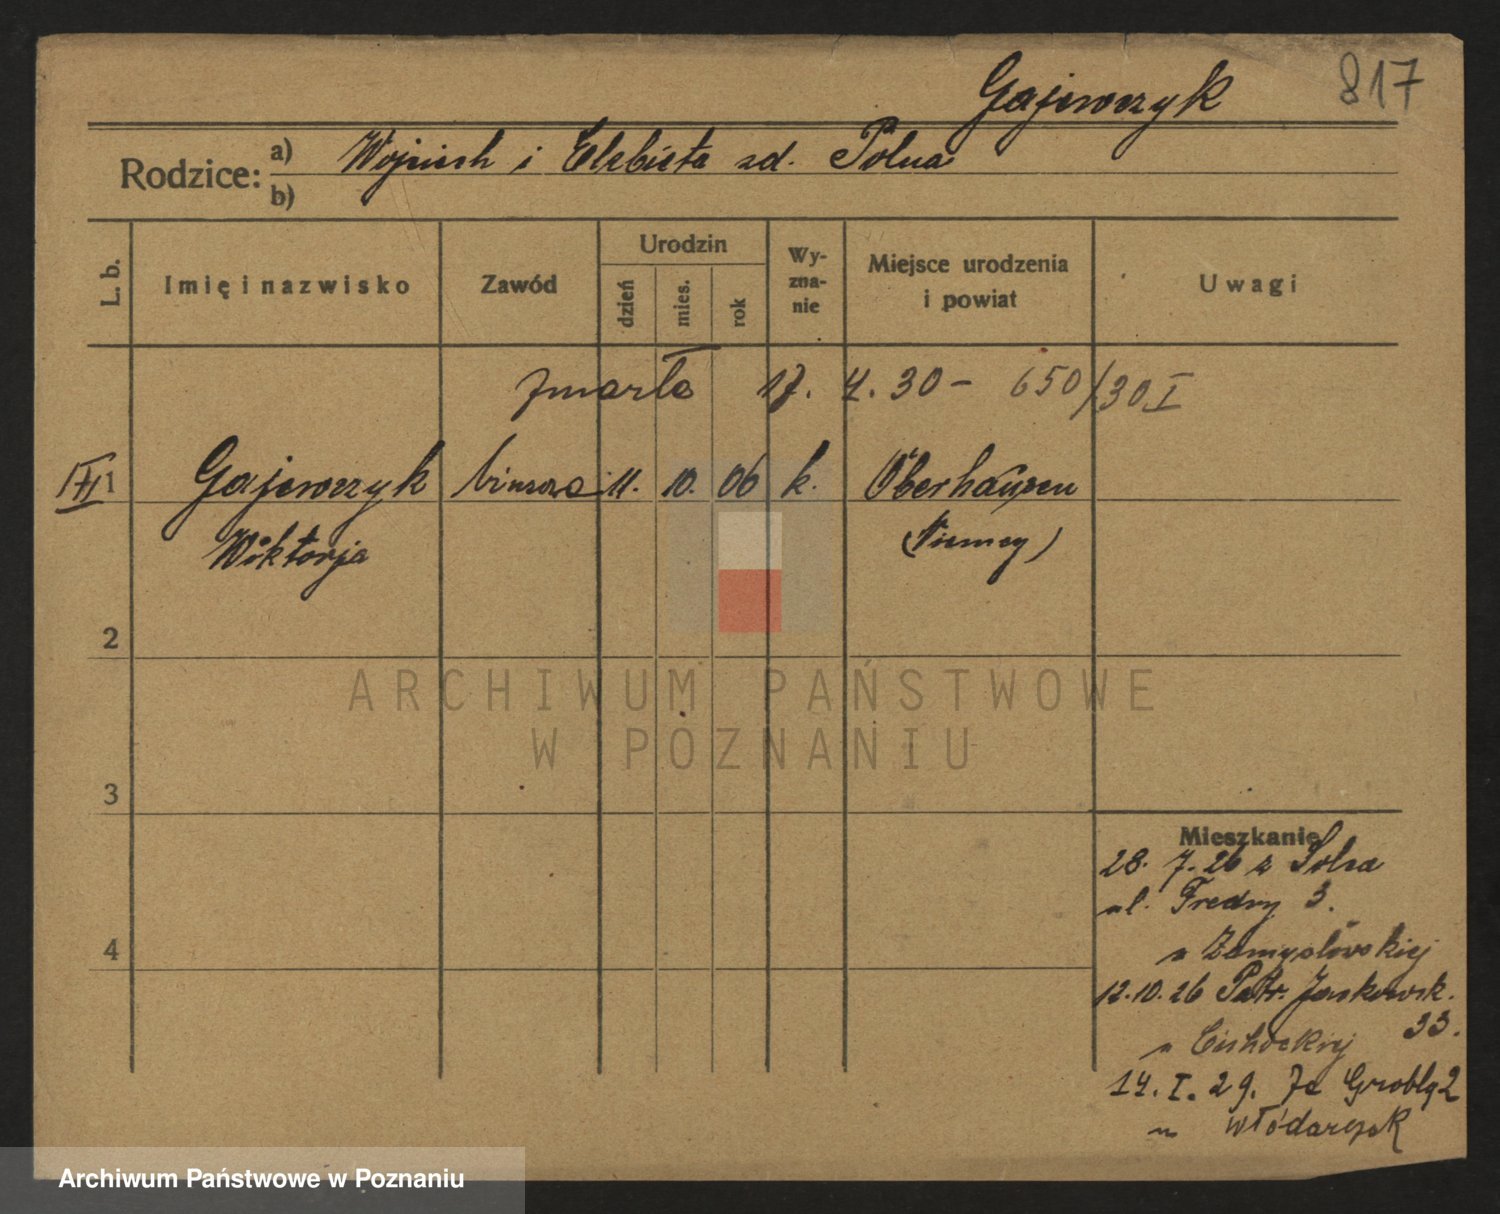 817
Gajewczyk
Rodzice: a) Wojciech i Elżbieta zd. Polna
b)
L. b. Imię i nazwisko Zawód Urodzin dzień mies. rok Wy-zna-nie Miejsce urodzenia i powiat Uwagi
zmarła 17. 4. 30 - 650/30 I
1 Gajewczyk biurowa 11. 10. 06 k. Oberhausen
Wiktorja (Niemcy)
2
ARCHIWUM PAŃSTWOWE
W POZNANIU
3
4
Mieszkanie
28. 7. 26 z
ul. Fredry 3.
u Zamysłowskiej
12.10.26 Patr. Jackowsk.
33.
u Cichockiej
14. I. 29. Grobla 2
u Włódarczak
Archiwum Państwowe w Poznaniu